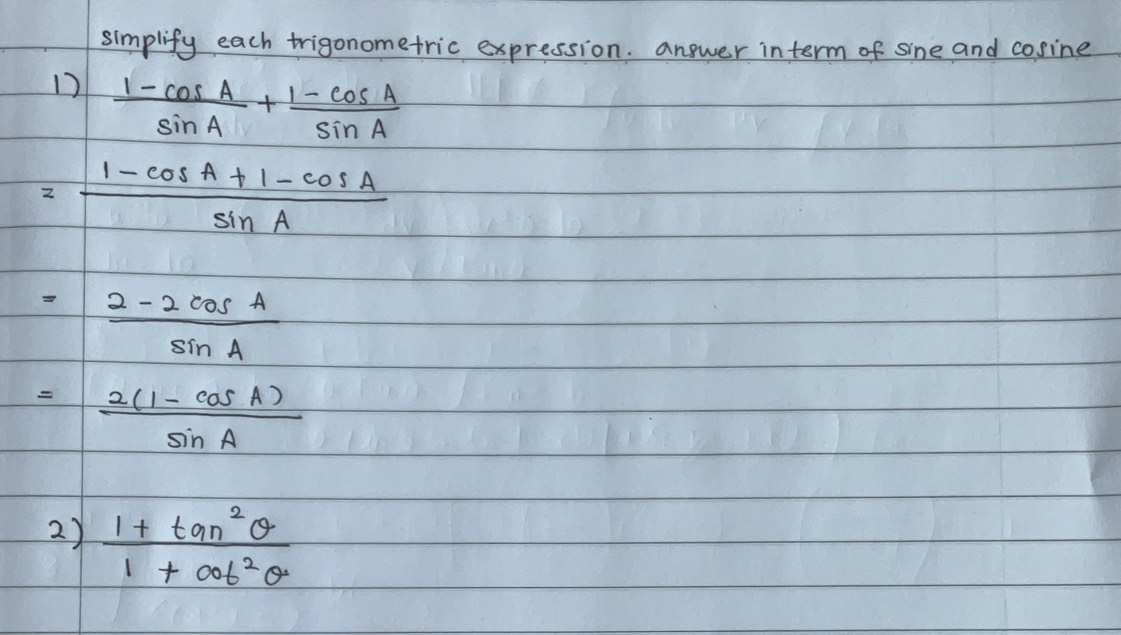 simplify each trigonometric expression. answer in term of sine and cosine
1) (1 - cos A)/(sin A) + (1 - cos A)/(sin A)
= (1 - cos A + 1 - cos A)/(sin A)
= (2 - 2 cos A)/(sin A)
= (2(1 - cos A))/(sin A)
2) (1 + tan² θ)/(1 + cot² θ)